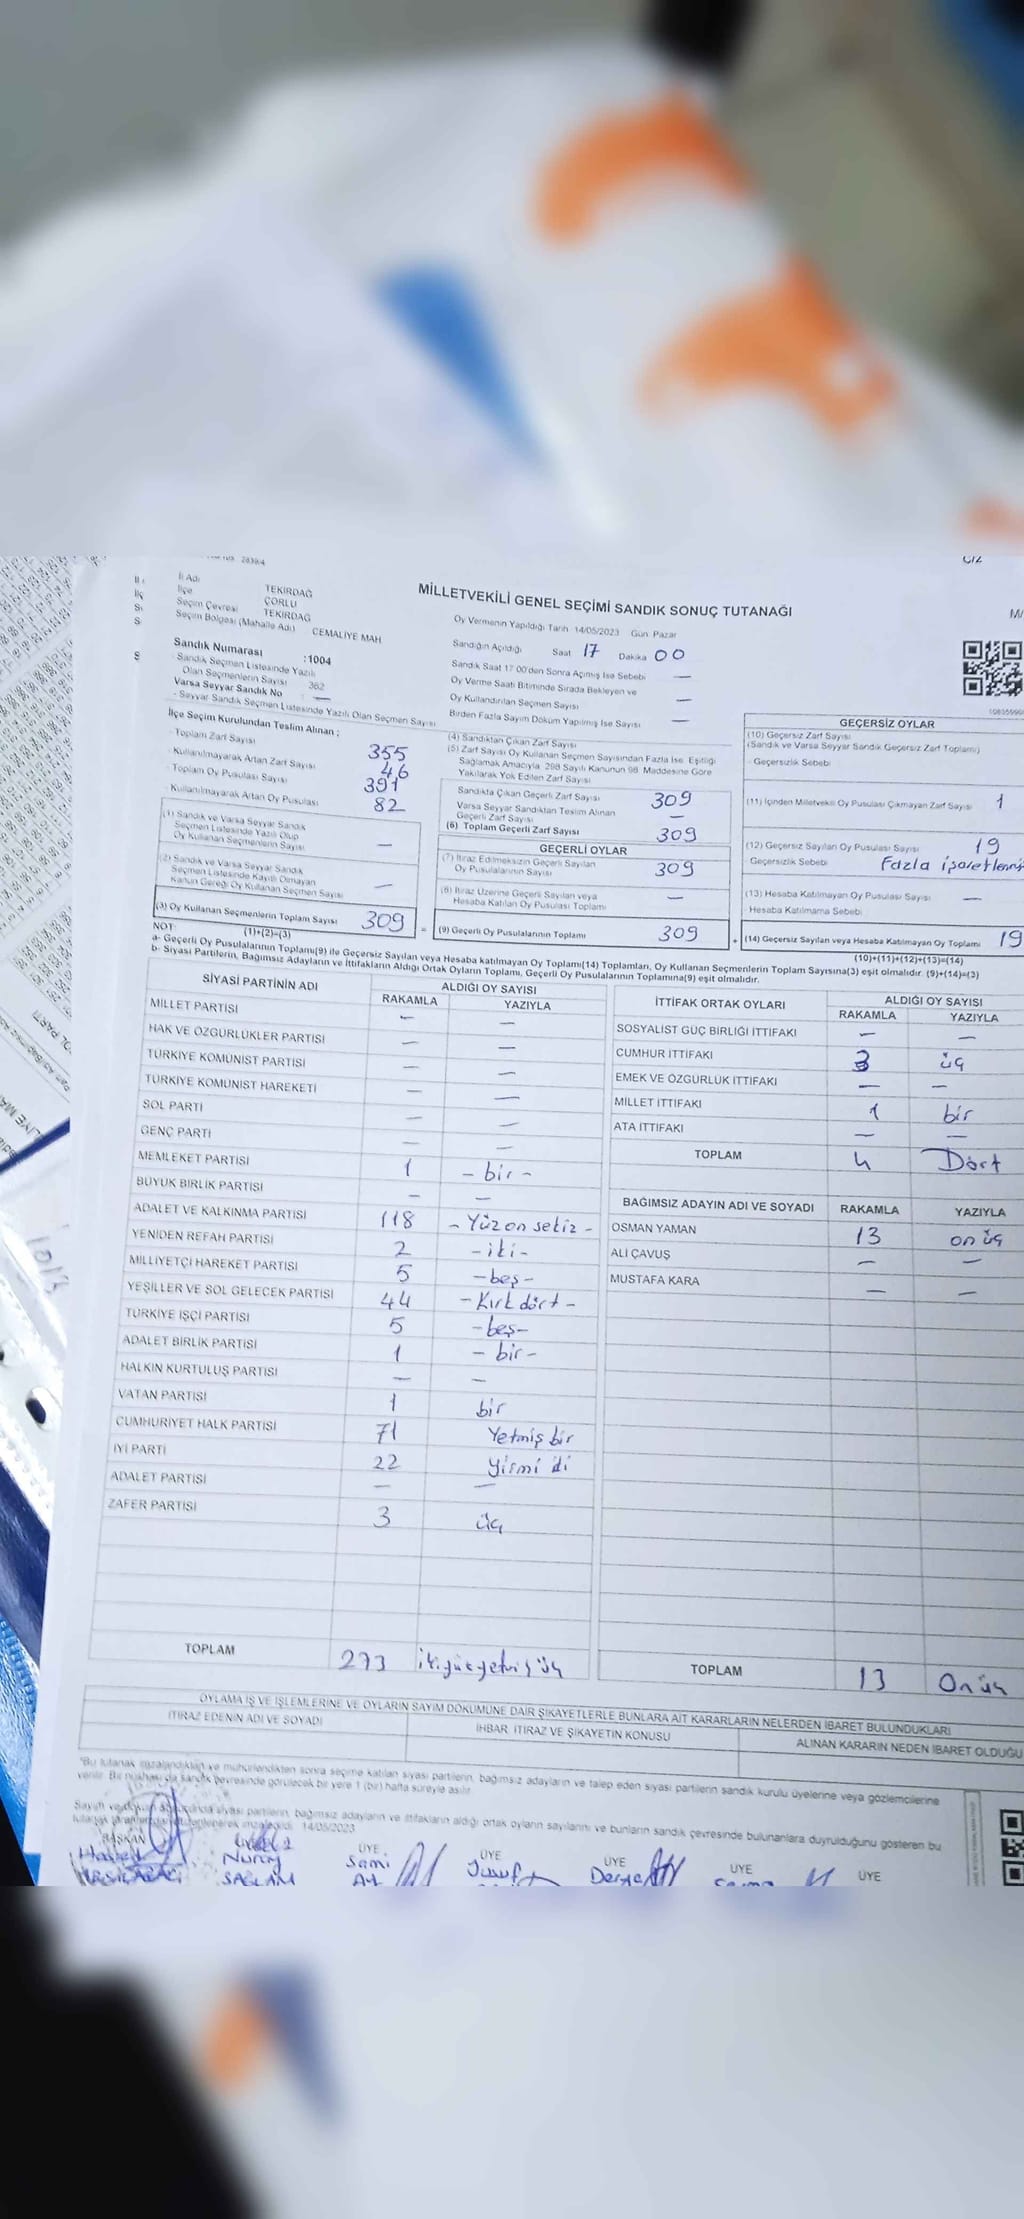 2839/4
İl Adı TEKİRDAĞ
İlçe ÇORLU
Seçim Çevresi TEKİRDAĞ
Seçim Bölgesi (Mahalle Adı) CEMALİYE MAH
MİLLETVEKİLİ GENEL SEÇİMİ SANDIK SONUÇ TUTANAĞI
Oy Vermenin Yapıldığı Tarih 14/05/2023 Gün Pazar
Sandık Numarası :1004
Sandık Seçmen Listesinde Yazılı
Olan Seçmenlerin Sayısı : 362
Varsa Seyyar Sandık No : —
- Seyyar Sandık Seçmen Listesinde Yazılı Olan Seçmen Sayısı
Sandığın Açıldığı Saat 17 Dakika 00
Sandık Saat 17 00'den Sonra Açılmış İse Sebebi —
Oy Verme Saati Bitiminde Sırada Bekleyen ve
Oy Kullandırılan Seçmen Sayısı —
Birden Fazla Sayım Döküm Yapılmış İse Sayısı —
İlçe Seçim Kurulundan Teslim Alınan ;
- Toplam Zarf Sayısı 355
- Kullanılmayarak Artan Zarf Sayısı 46
- Toplam Oy Pusulası Sayısı 391
- Kullanılmayarak Artan Oy Pusulası 82
(1) Sandık ve Varsa Seyyar Sandık
Seçmen Listesinde Yazılı Olup
Oy Kullanan Seçmenlerin Sayısı —
(2) Sandık ve Varsa Seyyar Sandık
Seçmen Listesinde Kayıtlı Olmayan
Kanun Gereği Oy Kullanan Seçmen Sayısı —
(3) Oy Kullanan Seçmenlerin Toplam Sayısı 309
(1)+(2)=(3)
(4) Sandıktan Çıkan Zarf Sayısı
(5) Zarf Sayısı Oy Kullanan Seçmen Sayısından Fazla İse Eşitliği
Sağlamak Amacıyla 298 Sayılı Kanunun 98 Maddesine Göre
Yakılarak Yok Edilen Zarf Sayısı —
Sandıkta Çıkan Geçerli Zarf Sayısı 309
Varsa Seyyar Sandıktan Teslim Alınan
Geçerli Zarf Sayısı —
(6) Toplam Geçerli Zarf Sayısı 309
GEÇERLİ OYLAR
(7) İtiraz Edilmeksizin Geçerli Sayılan
Oy Pusulalarının Sayısı 309
(8) İtiraz Üzerine Geçerli Sayılan veya
Hesaba Katılan Oy Pusulası Toplamı —
= (9) Geçerli Oy Pusulalarının Toplamı 309
GEÇERSİZ OYLAR
(10) Geçersiz Zarf Sayısı
(Sandık ve Varsa Seyyar Sandık Geçersiz Zarf Toplamı)
Geçersizlik Sebebi
(11) İçinden Milletvekili Oy Pusulası Çıkmayan Zarf Sayısı 1
(12) Geçersiz Sayılan Oy Pusulası Sayısı 19
Geçersizlik Sebebi Fazla işaretlenmi
(13) Hesaba Katılmayan Oy Pusulası Sayısı —
- Hesaba Katılmama Sebebi
+ (14) Geçersiz Sayılan veya Hesaba Katılmayan Oy Toplamı 19
(10)+(11)+(12)+(13)=(14)
NOT:
a- Geçerli Oy Pusulalarının Toplamı(9) ile Geçersiz Sayılan veya Hesaba katılmayan Oy Toplamı(14) Toplamları, Oy Kullanan Seçmenlerin Toplam Sayısına(3) eşit olmalıdır. (9)+(14)=(3)
b- Siyasi Partilerin, Bağımsız Adayların ve İttifakların Aldığı Ortak Oyların Toplamı, Geçerli Oy Pusulalarının Toplamına(9) eşit olmalıdır.
SİYASİ PARTİNİN ADI ALDIĞI OY SAYISI
RAKAMLA YAZIYLA
MİLLET PARTİSİ — —
HAK VE ÖZGÜRLÜKLER PARTİSİ — —
TÜRKİYE KOMÜNİST PARTİSİ — —
TÜRKİYE KOMÜNİST HAREKETİ — —
SOL PARTİ — —
GENÇ PARTİ — —
MEMLEKET PARTİSİ 1 - bir -
BÜYÜK BİRLİK PARTİSİ — —
ADALET VE KALKINMA PARTİSİ 118 - Yüzonsekiz -
YENİDEN REFAH PARTİSİ 2 - iki -
MİLLİYETÇİ HAREKET PARTİSİ 5 - beş -
YEŞİLLER VE SOL GELECEK PARTİSİ 44 - Kırkdört -
TÜRKİYE İŞÇİ PARTİSİ 5 - beş -
ADALET BİRLİK PARTİSİ 1 - bir -
HALKIN KURTULUŞ PARTİSİ — —
VATAN PARTİSİ 1 bir
CUMHURİYET HALK PARTİSİ 71 Yetmişbir
İYİ PARTİ 22 yirmi iki
ADALET PARTİSİ — —
ZAFER PARTİSİ 3 üç
TOPLAM 273 ikiyüzyetmişüç
İTTİFAK ORTAK OYLARI ALDIĞI OY SAYISI
RAKAMLA YAZIYLA
SOSYALİST GÜÇ BİRLİĞİ İTTİFAKI — —
CUMHUR İTTİFAKI 3 üç
EMEK VE ÖZGÜRLÜK İTTİFAKI — —
MİLLET İTTİFAKI 1 bir
ATA İTTİFAKI — —
TOPLAM 4 Dört
BAĞIMSIZ ADAYIN ADI VE SOYADI RAKAMLA YAZIYLA
OSMAN YAMAN 13 on üç
ALİ ÇAVUŞ — —
MUSTAFA KARA — —
TOPLAM 13 Onüç
OYLAMA İŞ VE İŞLEMLERİNE VE OYLARIN SAYIM DÖKÜMÜNE DAİR ŞİKAYETLERLE BUNLARA AİT KARARLARIN NELERDEN İBARET BULUNDUKLARI
İTİRAZ EDENİN ADI VE SOYADI İHBAR, İTİRAZ VE ŞİKAYETİN KONUSU ALINAN KARARIN NEDEN İBARET OLDUĞU
"Bu tutanak imzalandıktan ve mühürlendikten sonra seçime katılan siyasi partilerin, bağımsız adayların ve talep eden siyasi partilerin sandık kurulu üyelerine veya gözlemcilerine
verilir. Bir nüshası da sandık çevresinde görülecek bir yere 1 (bir) hafta süreyle asılır.
siyasi partilerin, bağımsız adayların ve ittifakların aldığı ortak oyların sayılarını ve bunların sandık çevresinde bulunanlara duyrulduğunu gösteren bu
14/05/2023
BAŞKAN ÜYE ÜYE ÜYE ÜYE ÜYE
Nuray Sami Yusuf Derya
SAĞLAM